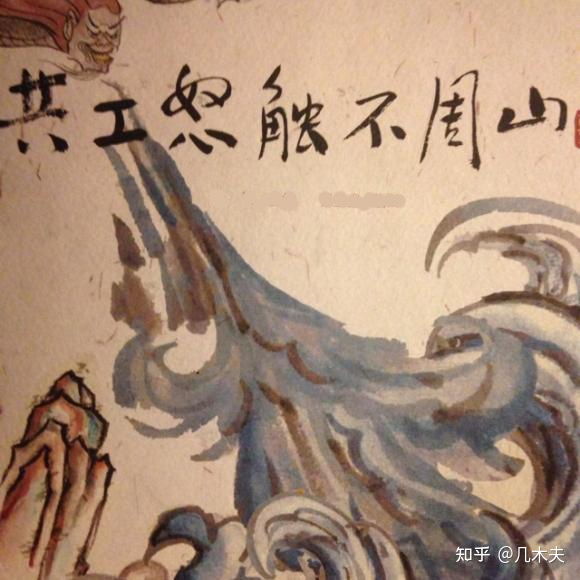 共工怒触不周山
知乎 @几木夫